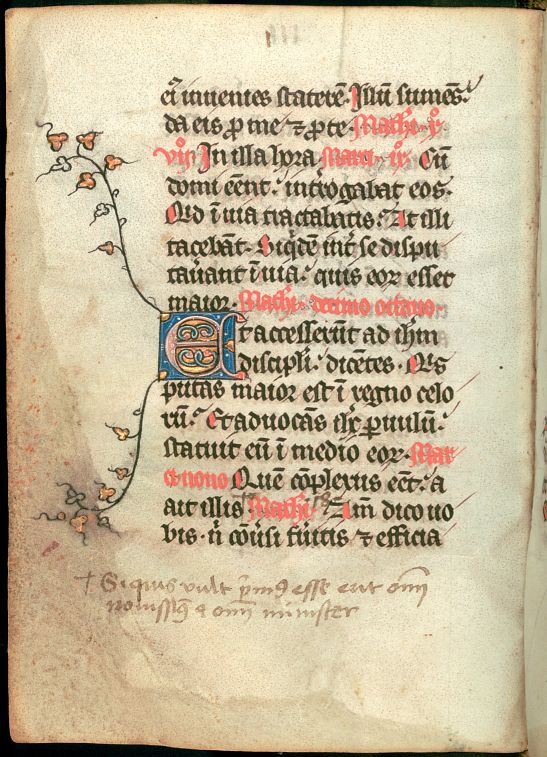 et inuentes staterē. Illū sumēs:
da eis ꝓ me ⁊ ꝓ te. Mathi. x
viii In illa hora Marci. ix. Cū
domi eēnt: introgabat eos.
Qd ī uia tractabatis: At illi
tacebāt. Siqdē int se dispu
tauant ī uia: quis eoꝝ esset
maior. Mathi. decimo octauo.
Et accesserūt ad ihm
discipli: dicētes. Qs
putas maior est ī regno celo
rū: Et aduocās ihc paruulū:
statuit eū ī medio eoꝝ. Mar
ci nono Quē cōplexus eēt: a
ait illis Mathi. 18. Am̄ dico uo
bis. n̄ cōusi fuitis ⁊ efficia
+ Si quis vult prim9 esse erit om̄i
nouissim9 & om̄i minister